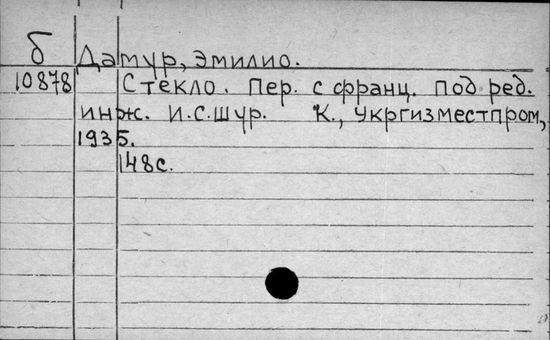 б
Дамур, Эмилио.
10878 Стекло. Пер. с франц. под ред.
инж. И.С.Шур. К., Укргизместпром,
1935.
148с.